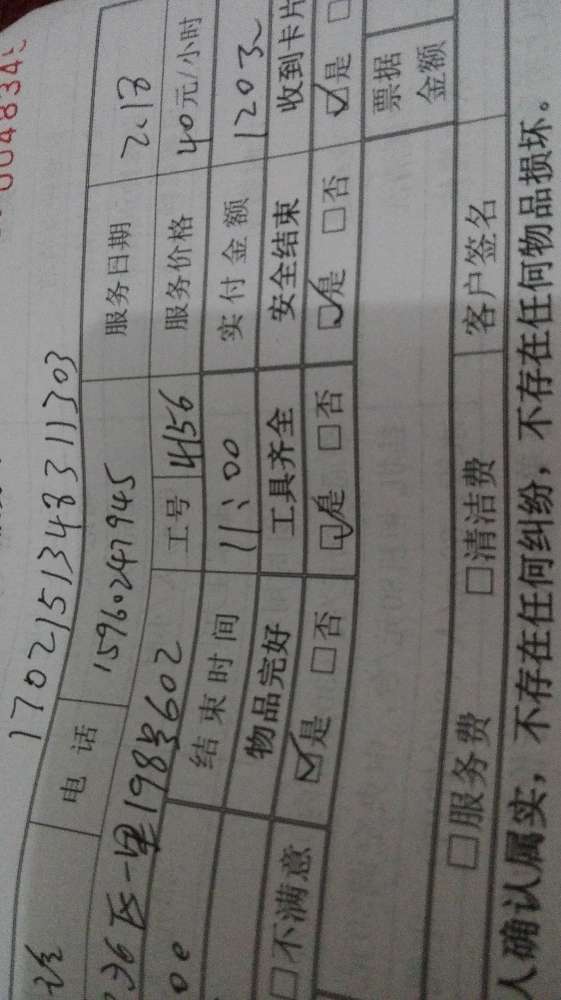 0048345
17021513483 11303
电话 15960247945 服务日期 2.18
36区一里198号602 工号 4156 服务价格 40元/小时
00 结束时间 11:00 实付金额 120元
物品完好 工具齐全 安全结束 收到卡片
□不满意 ☑是 □否 ☑是 □否 ☑是 □否 ☑是 □
票据金额
□服务费 □清洁费 客户签名
人确认属实，不存在任何纠纷，不存在任何物品损坏。